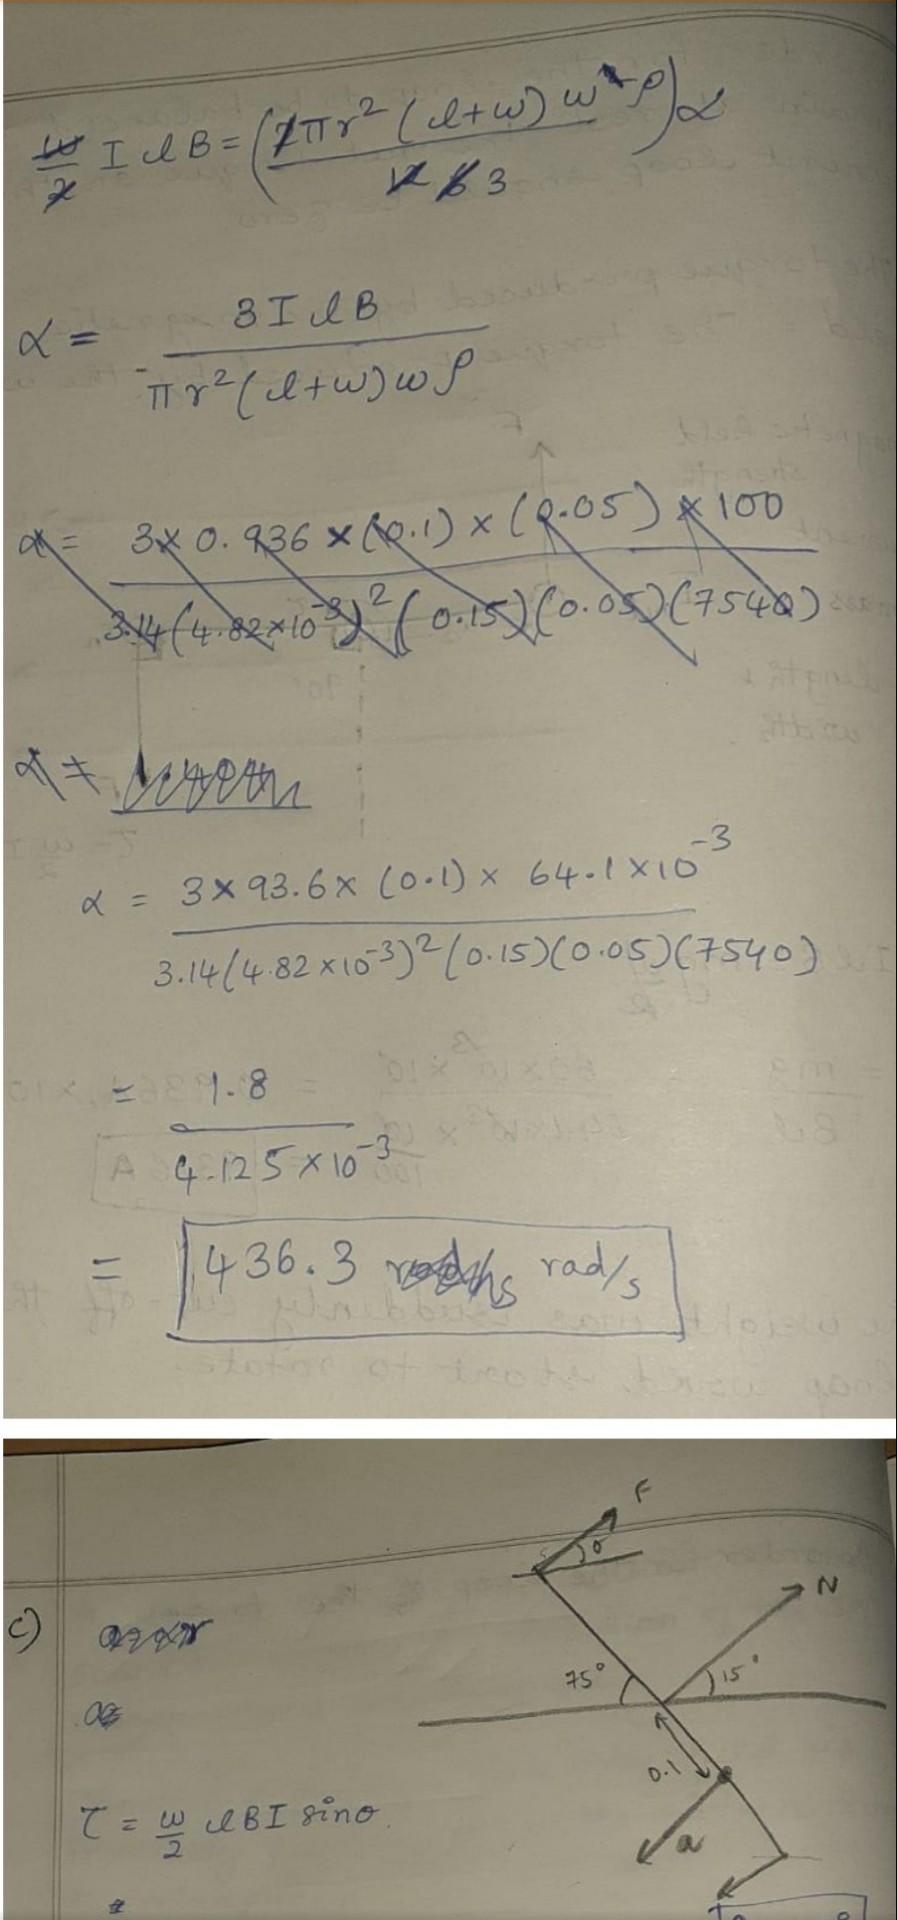 w/2 I l B = (2πr² (l+w) w² ρ / 12 6 3) α
α = 3 I l B / πr² (l+w) w ρ
α = 3 × 0.936 × (0.1) × (0.05) × 100 / 3.14 (4.82×10⁻³)² (0.15) (0.05) (7540)
α =
α = 3 × 93.6 × (0.1) × 64.1 × 10⁻³ / 3.14 (4.82 × 10⁻³)² (0.15) (0.05) (7540)
= 1.8 / 4.125 × 10⁻³
= 436.3 rad/s
F
θ
N
c)
75°
15°
0.1
a
τ = w/2 l B I sinθ